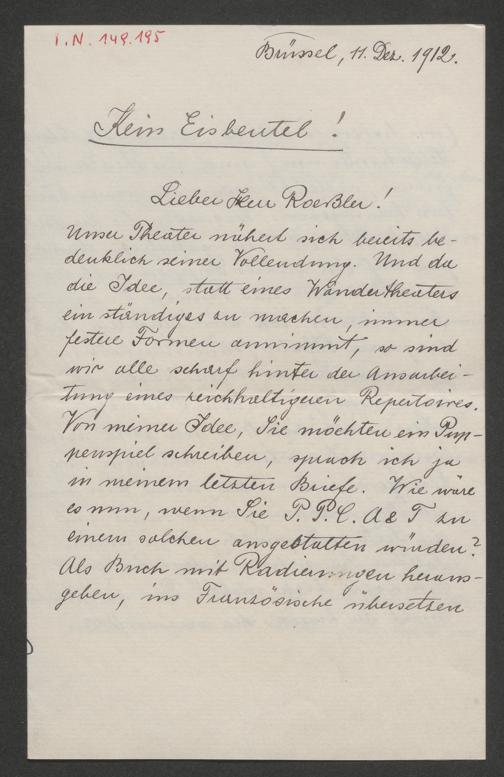 I.N. 149.195
Brüssel, 11. Dez. 1912.
Kein Eisbeutel!
Lieber Herr Roeßler!
Unser Theater nähert sich bereits be-
denklich seiner Vollendung. Und da
die Idee, statt eines Wandertheaters
ein ständiges zu machen, immer
festere Formen annimmt, so sind
wir alle scharf hinter der Ausarbei-
tung eines reichhaltigeren Repertoires.
Von meiner Idee, Sie möchten ein Pup-
penspiel schreiben, sprach ich ja
in meinem letzten Briefe. Wie wäre
es nun, wenn Sie P. P. C. A & T zu
einem solchen ausgestalten würden?
Als Buch mit Radierungen heraus-
geben, ins Französische übersetzen